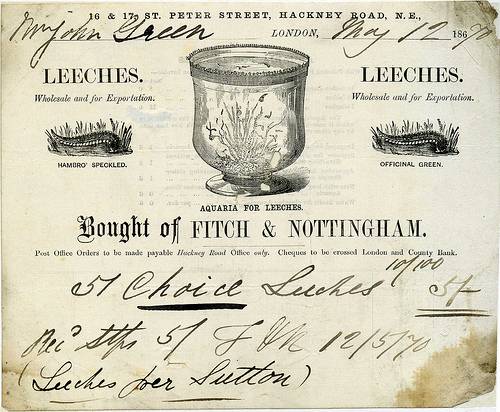 16 & 17, ST. PETER STREET, HACKNEY ROAD, N.E.,
Mr John Green LONDON, May 12 1870
LEECHES. LEECHES.
Wholesale and for Exportation. Wholesale and for Exportation.
HAMBRO' SPECKLED. OFFICINAL GREEN.
AQUARIA FOR LEECHES.
Bought of FITCH & NOTTINGHAM.
Post Office Orders to be made payable Hackney Road Office only. Cheques to be crossed London and County Bank.
10/100
51 Choice Leeches 5/-
Recd Stps 5/ F & N 12/5/70
(Leeches per Sutton)